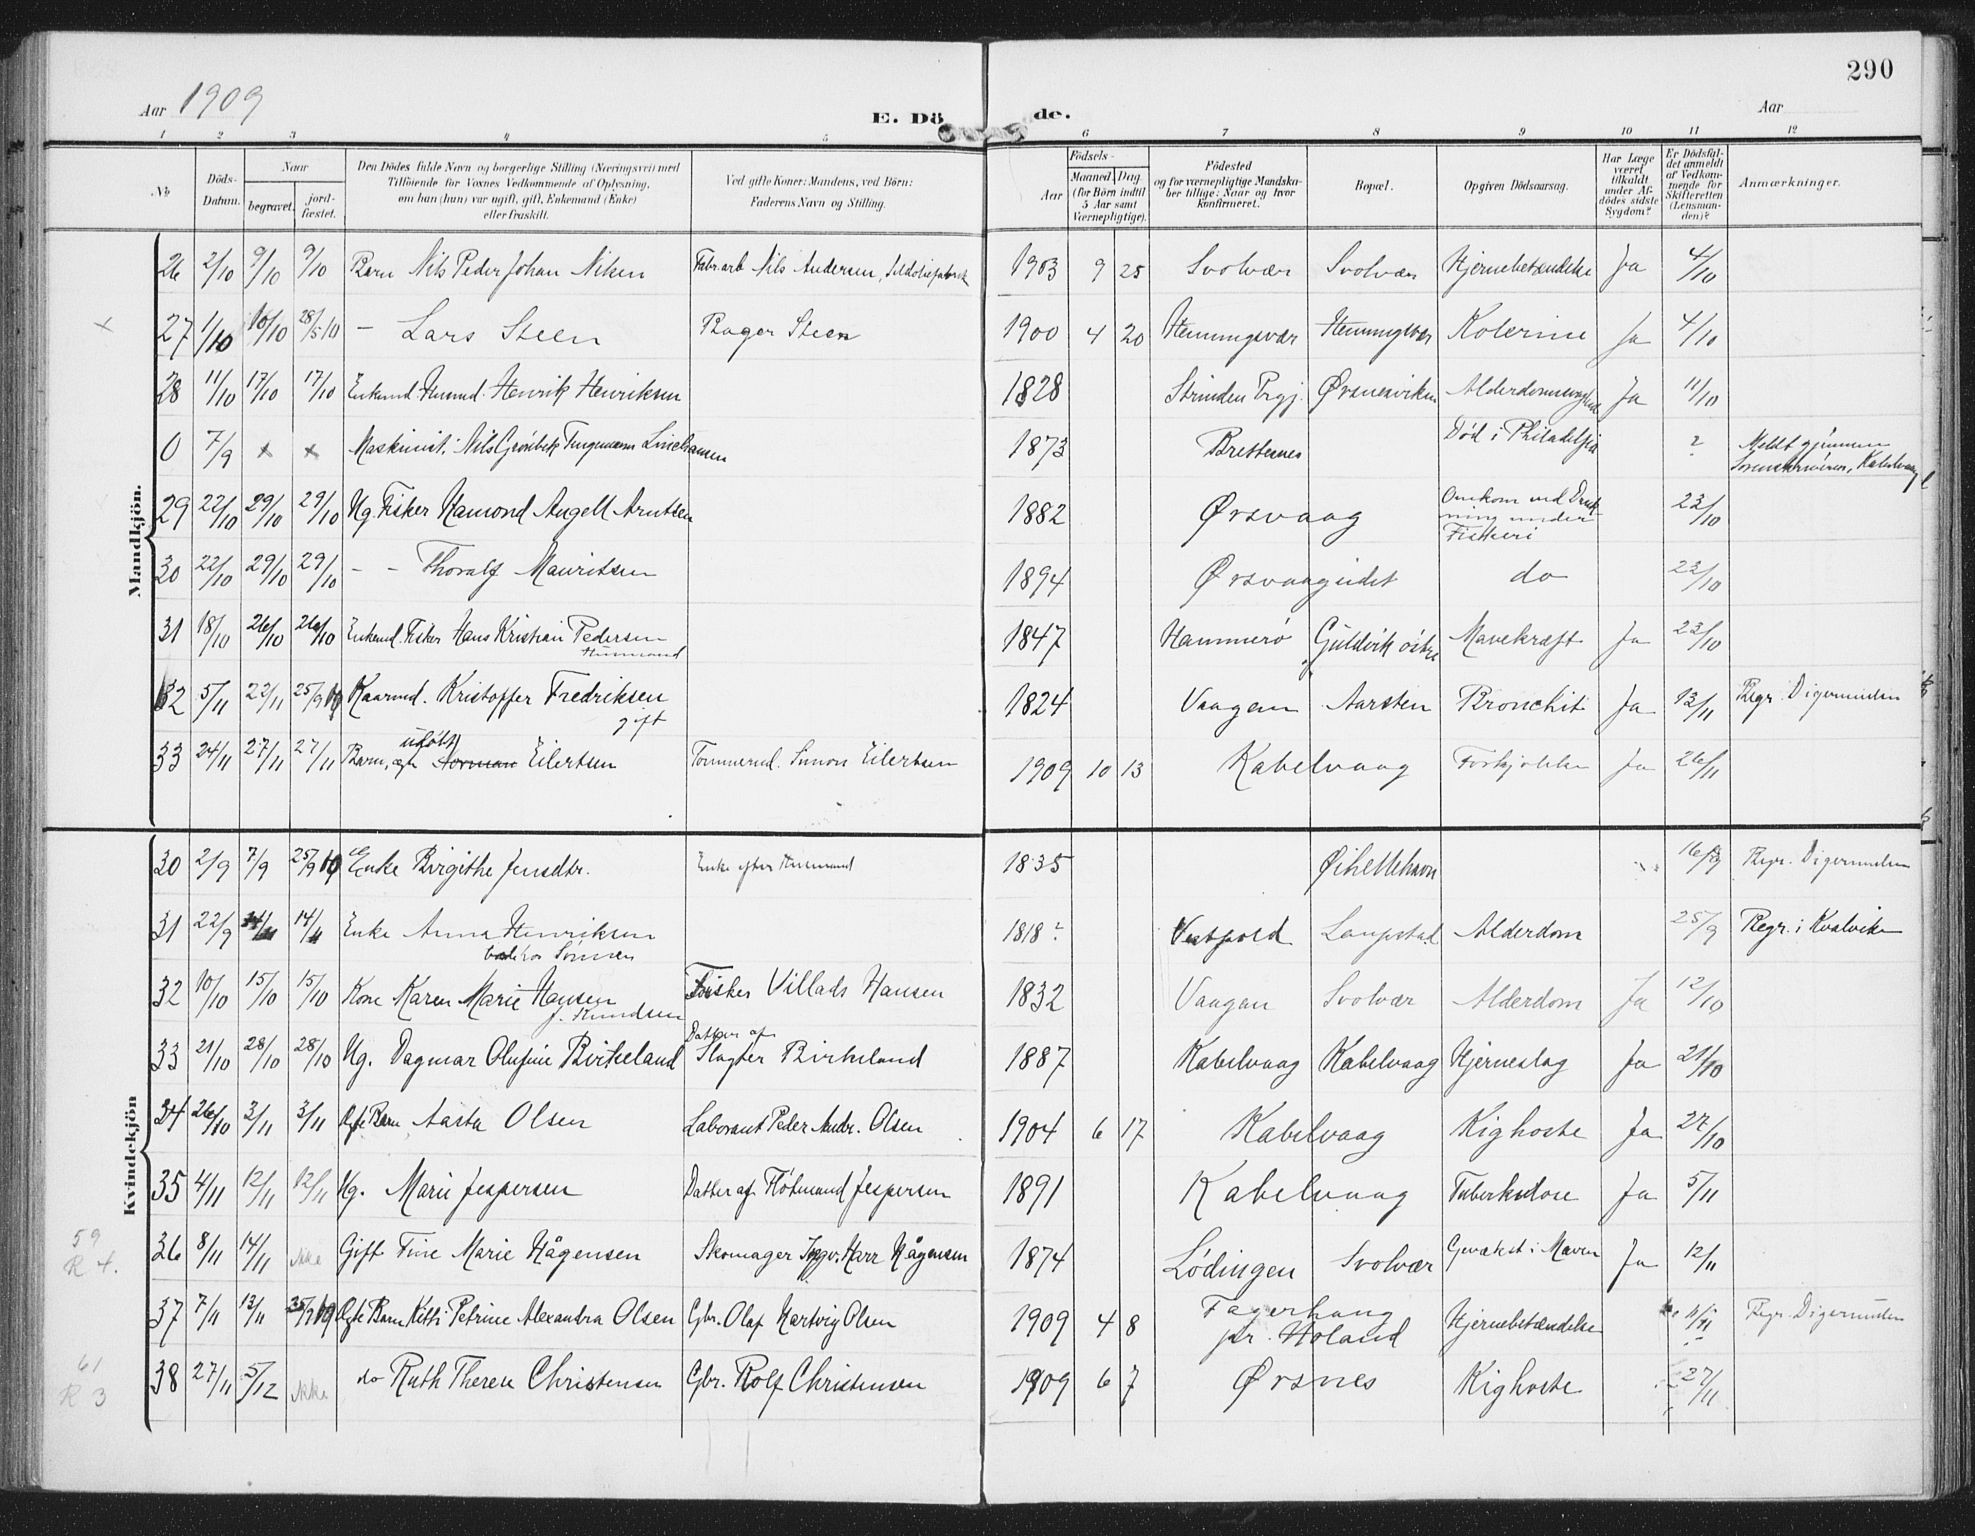 290
Aar 1909 E. Döde. Aar
1 2 3 4 5 6 7 8 9 10 11 12
№ Döds-Datum. Naar begravet. jordfæstet. Den Dödes fulde Navn og borgerlige Stilling (Næringsvei) med Tilföiende for Voxnes Vedkommende af Oplysning, om han (hun) var ugift, gift, Enkemand (Enke) eller fraskilt. Ved gifte Koner: Mandens, ved Börn: Faderens Navn og Stilling. Födsels- Aar Maaned. Dag. (for Börn indtil 5 Aar samt Værnepligtige). Födested og for værnepligtige Mandskaber tillige: Naar og hvor konfirmeret. Bopæl. Opgiven Dödsaarsag. Har Læge været tilkaldt under Afdödes sidste Sygdom? Er Dödsfaldet anmeldt af Vedkommende for Skifteretten (Lensmanden)? Anmærkninger.
Mandkjön.
26 2/10 9/10 9/10 Barn Nils Peder Johan Nilsen Fabr.arb Nils Andersen, Sildoliefabrik 1903 9 25 Svolvær Svolvær Hjernebetændelse Ja 4/10
x 27 1/10 10/10 28/5 10 - Lars Steen Bager Steen 1900 4 20 Henningsvær Henningsvær Kolerine Ja 4/10
28 11/10 17/10 17/10 Enkemd. Husmd. Henrik Henriksen 1828 Strinden Prgj. Ørsnesviken Alderdomssvaghed Ja 11/10
0 7/9 x x Maskinist: Nils Grønbek Tingemann Linehansen 1873 Brettesnes Död i Philadelfia ? Meldt gjennem Sorenskriveren, Kabelvaag
29 22/10 29/10 29/10 Ug. Fisker Hamond Angell Arntsen 1882 Ørsvaag Omkom ved Drukning under Fiskeri 23/10
30 22/10 29/10 29/10 - - Thoralf Mauritsen 1894 Ørsvaageidet do 23/10
31 18/10 26/10 26/10 Enkemd. Fisker Hans Kristian Pedersen Husmand 1847 Hammerö Guldvik östre Mavekræft Ja 23/10
32 5/11 22/11 25/9 10 Kaarmd. Kristoffer Fredriksen gift 1824 Vaagan Aarsten Bronchit Ja 13/11 Regr. Digermulen
33 24/11 27/11 27/11 Barn, ægte udöbt Norman Eilertsen Tömmermd. Simon Eilertsen 1909 10 13 Kabelvaag Forkjölelse Ja 26/11
Kvindekjön
30 2/9 7/9 25/9 10 Enke Birgithe Jensdtr. Enke efter Husmand 1835 Øihellehavn 16/9 Regr. Digermulen
31 22/9 14/11 14/11 Enke Anna Henriksen hos Sönnen 1818? Vestpold Laupstad Alderdom 25/9 Regr. i Kvalviken
32 10/10 15/10 15/10 Kone Karen Marie Hansen f. Knudsen Fisker Villads Hansen 1832 Vaagan Svolvær Alderdom Ja 12/10
33 21/10 28/10 28/10 Ug. Dagmar Olufine Birkeland Datter af Slagter Birkeland 1887 Kabelvaag Kabelvaag Hjerneslag Ja 21/10
34 26/10 3/11 3/11 Ægte Barn Aasta Olsen Laborant Peder Andr. Olsen 1904 6 17 Kabelvaag Kighoste Ja 27/10
35 4/11 12/11 12/11 Ug. Marie Jespersen Datter af Flötmand Jespersen 1891 Kabelvaag Tuberkulose Ja 5/11
59 R 4. 36 8/11 14/11 ikke Gift Tine Marie Hågensen Skomager Ingv. Harr Hågensen 1874 Lödingen Svolvær Gevækst i Maven Ja 12/11
37 7/11 13/11 25/9 10 Ægte Barn Kitti Petrine Alexandra Olsen Gbr. Olaf Hartvig Olsen 1909 4 8 Fagerhaug pr. Holand Hjernebetændelse 11/11 Regr. Digermulen
61 R 3 38 27/11 5/12 ikke do Ruth Therese Christensen Gbr. Rolf Christensen 1909 6 7 Ørsnes Kighoste 27/11